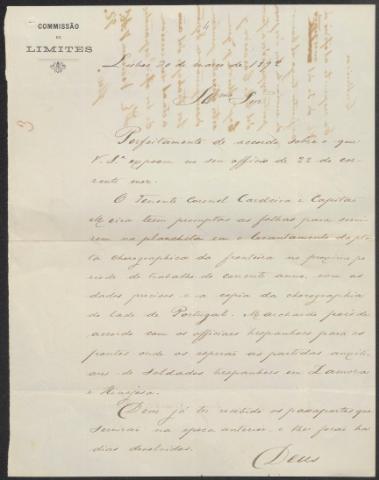 COMMISSÃO
DE
LIMITES
Lisboa 30 de março de 1892
Illmo Snr
Perfeitamente de accordo sobre o que
V. Sª expoem no seu officio de 22 do cor-
rente mez.
O Tenente Coronel Cardeira e Capitão
Meira tem promptas as folhas para servi-
rem na plancheta em o levantamento da plan-
ta chorographica da fronteira no proximo pe-
riodo de trabalho do corrente anno, com os
dados precisos e a copia da chorographia
do lado de Portugal. Marcharão pois de
accordo com os officiaes hespanhoes para os
pontos onde os esperão as partidas auxili-
ares de soldados hespanhoes em Zamora
e Hinojosa.
Dem já ter recebido os passaportes que
serviram na epoca anterior, e lhes forão ha
dias devolvidos.
Deus